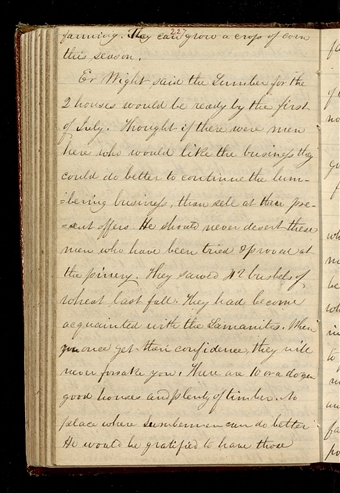 227
farming. They can grow a crop of corn
this season.
Er Wight said the Lumber for the
2 houses would be ready by the first
of July. Thought if there were men
here who would like the business they
could do better to continue the lum-
-bering business, than sell at their pre-
-sent offers. He should never desert these
men who have been tried & proved at
the pinery. They sowed 42 bushels of
wheat last fall. They had become
acquainted with the Lamanites. When
you once get their confidence, they will
never forsake you. There are 10 or a dozen
good houses and plenty of timber. No
place where Lumbermen can do better
He would be gratified to have those